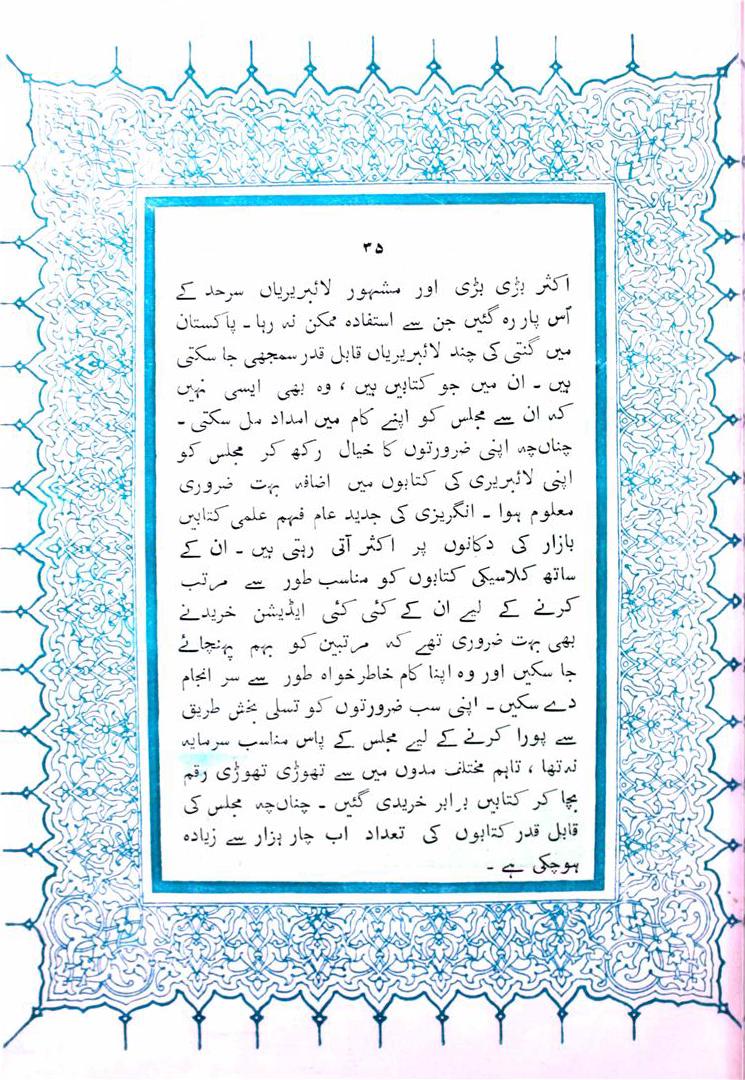 ۳۵
اکثر بڑی بڑی اور مشہور لائبریریاں سرحد کے
اُس پار رہ گئیں جن سے استفادہ ممکن نہ رہا ۔ پاکستان
میں گنتی کی چند لائبریریاں قابل قدر سمجھی جا سکتی
ہیں ۔ ان میں جو کتابیں ہیں ، وہ بھی ایسی نہیں
کہ ان سے مجلس کو اپنے کام میں امداد مل سکتی ۔
چناں‌چہ اپنی ضرورتوں کا خیال رکھ کر مجلس کو
اپنی لائبریری کی کتابوں میں اضافہ بہت ضروری
معلوم ہوا ۔ انگریزی کی جدید عام فہم علمی کتابیں
بازار کی دکانوں پر اکثر آتی رہتی ہیں ۔ ان کے
ساتھ کلاسیکی کتابوں کو مناسب طور سے مرتب
کرنے کے لیے ان کے کئی کئی ایڈیشن خریدنے
بھی بہت ضروری تھے کہ مرتبین کو بہم پہنچائے
جا سکیں اور وہ اپنا کام خاطر خواہ طور سے سر انجام
دے سکیں ۔ اپنی سب ضرورتوں کو تسلی بخش طریق
سے پورا کرنے کے لیے مجلس کے پاس مناسب سرمایہ
نہ تھا ، تاہم مختلف مدوں میں سے تھوڑی تھوڑی رقم
بچا کر کتابیں برابر خریدی گئیں ۔ چناں‌چہ مجلس کی
قابل قدر کتابوں کی تعداد اب چار ہزار سے زیادہ
ہوچکی ہے ۔